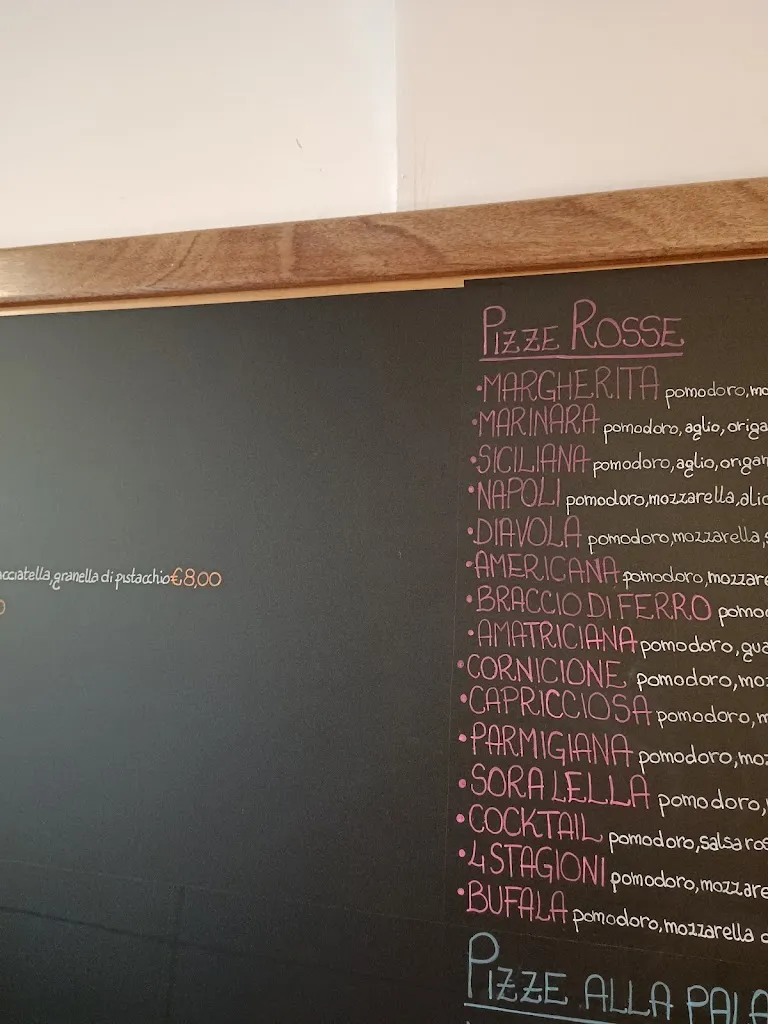 granella di pistacchio €8,00
PIZZE ROSSE
•MARGHERITA pomodoro,
•MARINARA pomodoro, aglio,
•SICILIANA pomodoro, aglio,
•NAPOLI pomodoro, mozzarella,
•DIAVOLA pomodoro, mozzarella,
•AMERICANA pomodoro,
•BRACCIO DI FERRO
•AMATRICIANA pomodoro,
•CORNICIONE pomodoro,
•CAPRICCIOSA pomodoro,
•PARMIGIANA pomodoro,
•SORA LELLA pomodoro,
•COCKTAIL pomodoro, salsa
•4 STAGIONI pomodoro,
•BUFALA pomodoro, mozzarella
PIZZE ALLA PALA